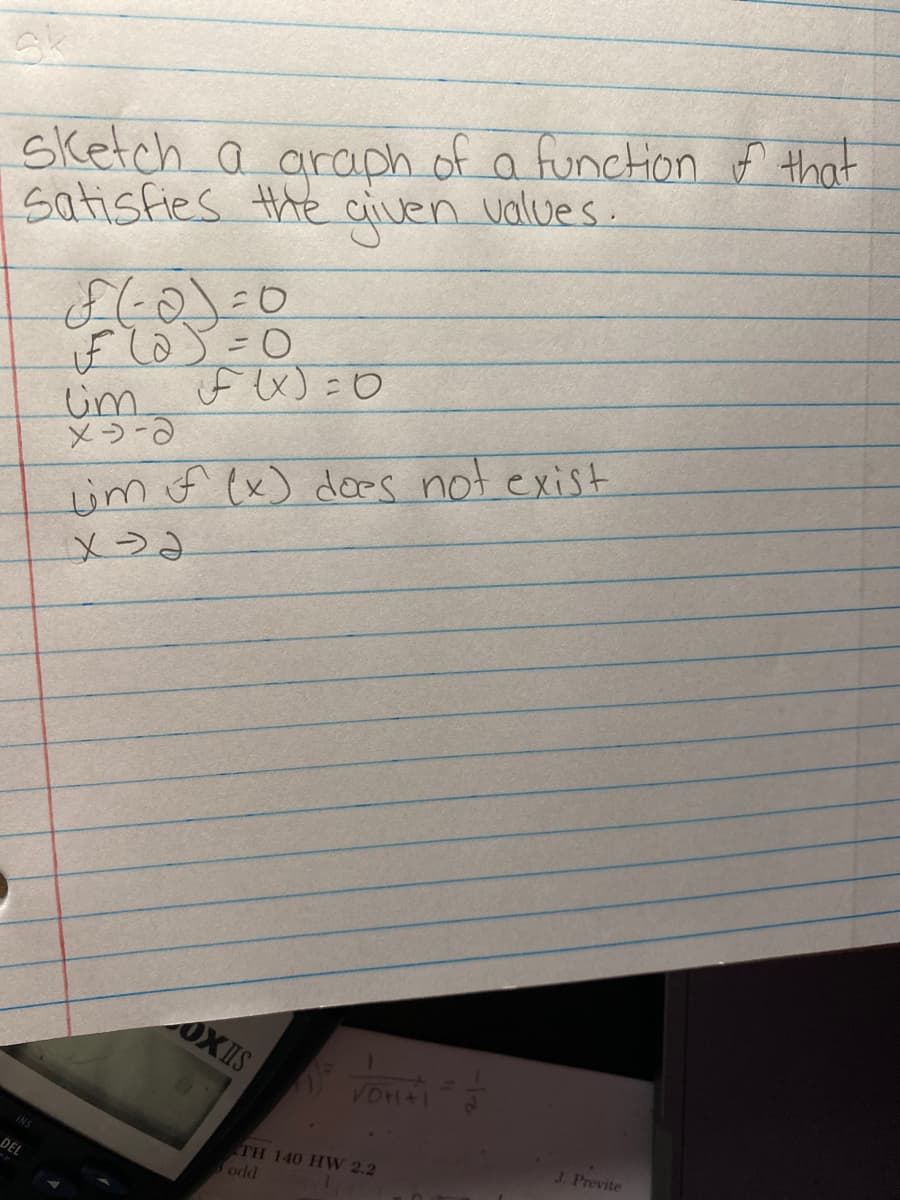 Sk
Sketch a graph of a function f that
satisfies the given values.
f(-2)=0
f(2)=0
lim f(x)=0
x→-2
lim f(x) does not exist
x→2
OXIIS
1
√0+1+1 = 1/2
INS
DEL
TH 140 HW 2.2
odd
J. Previte